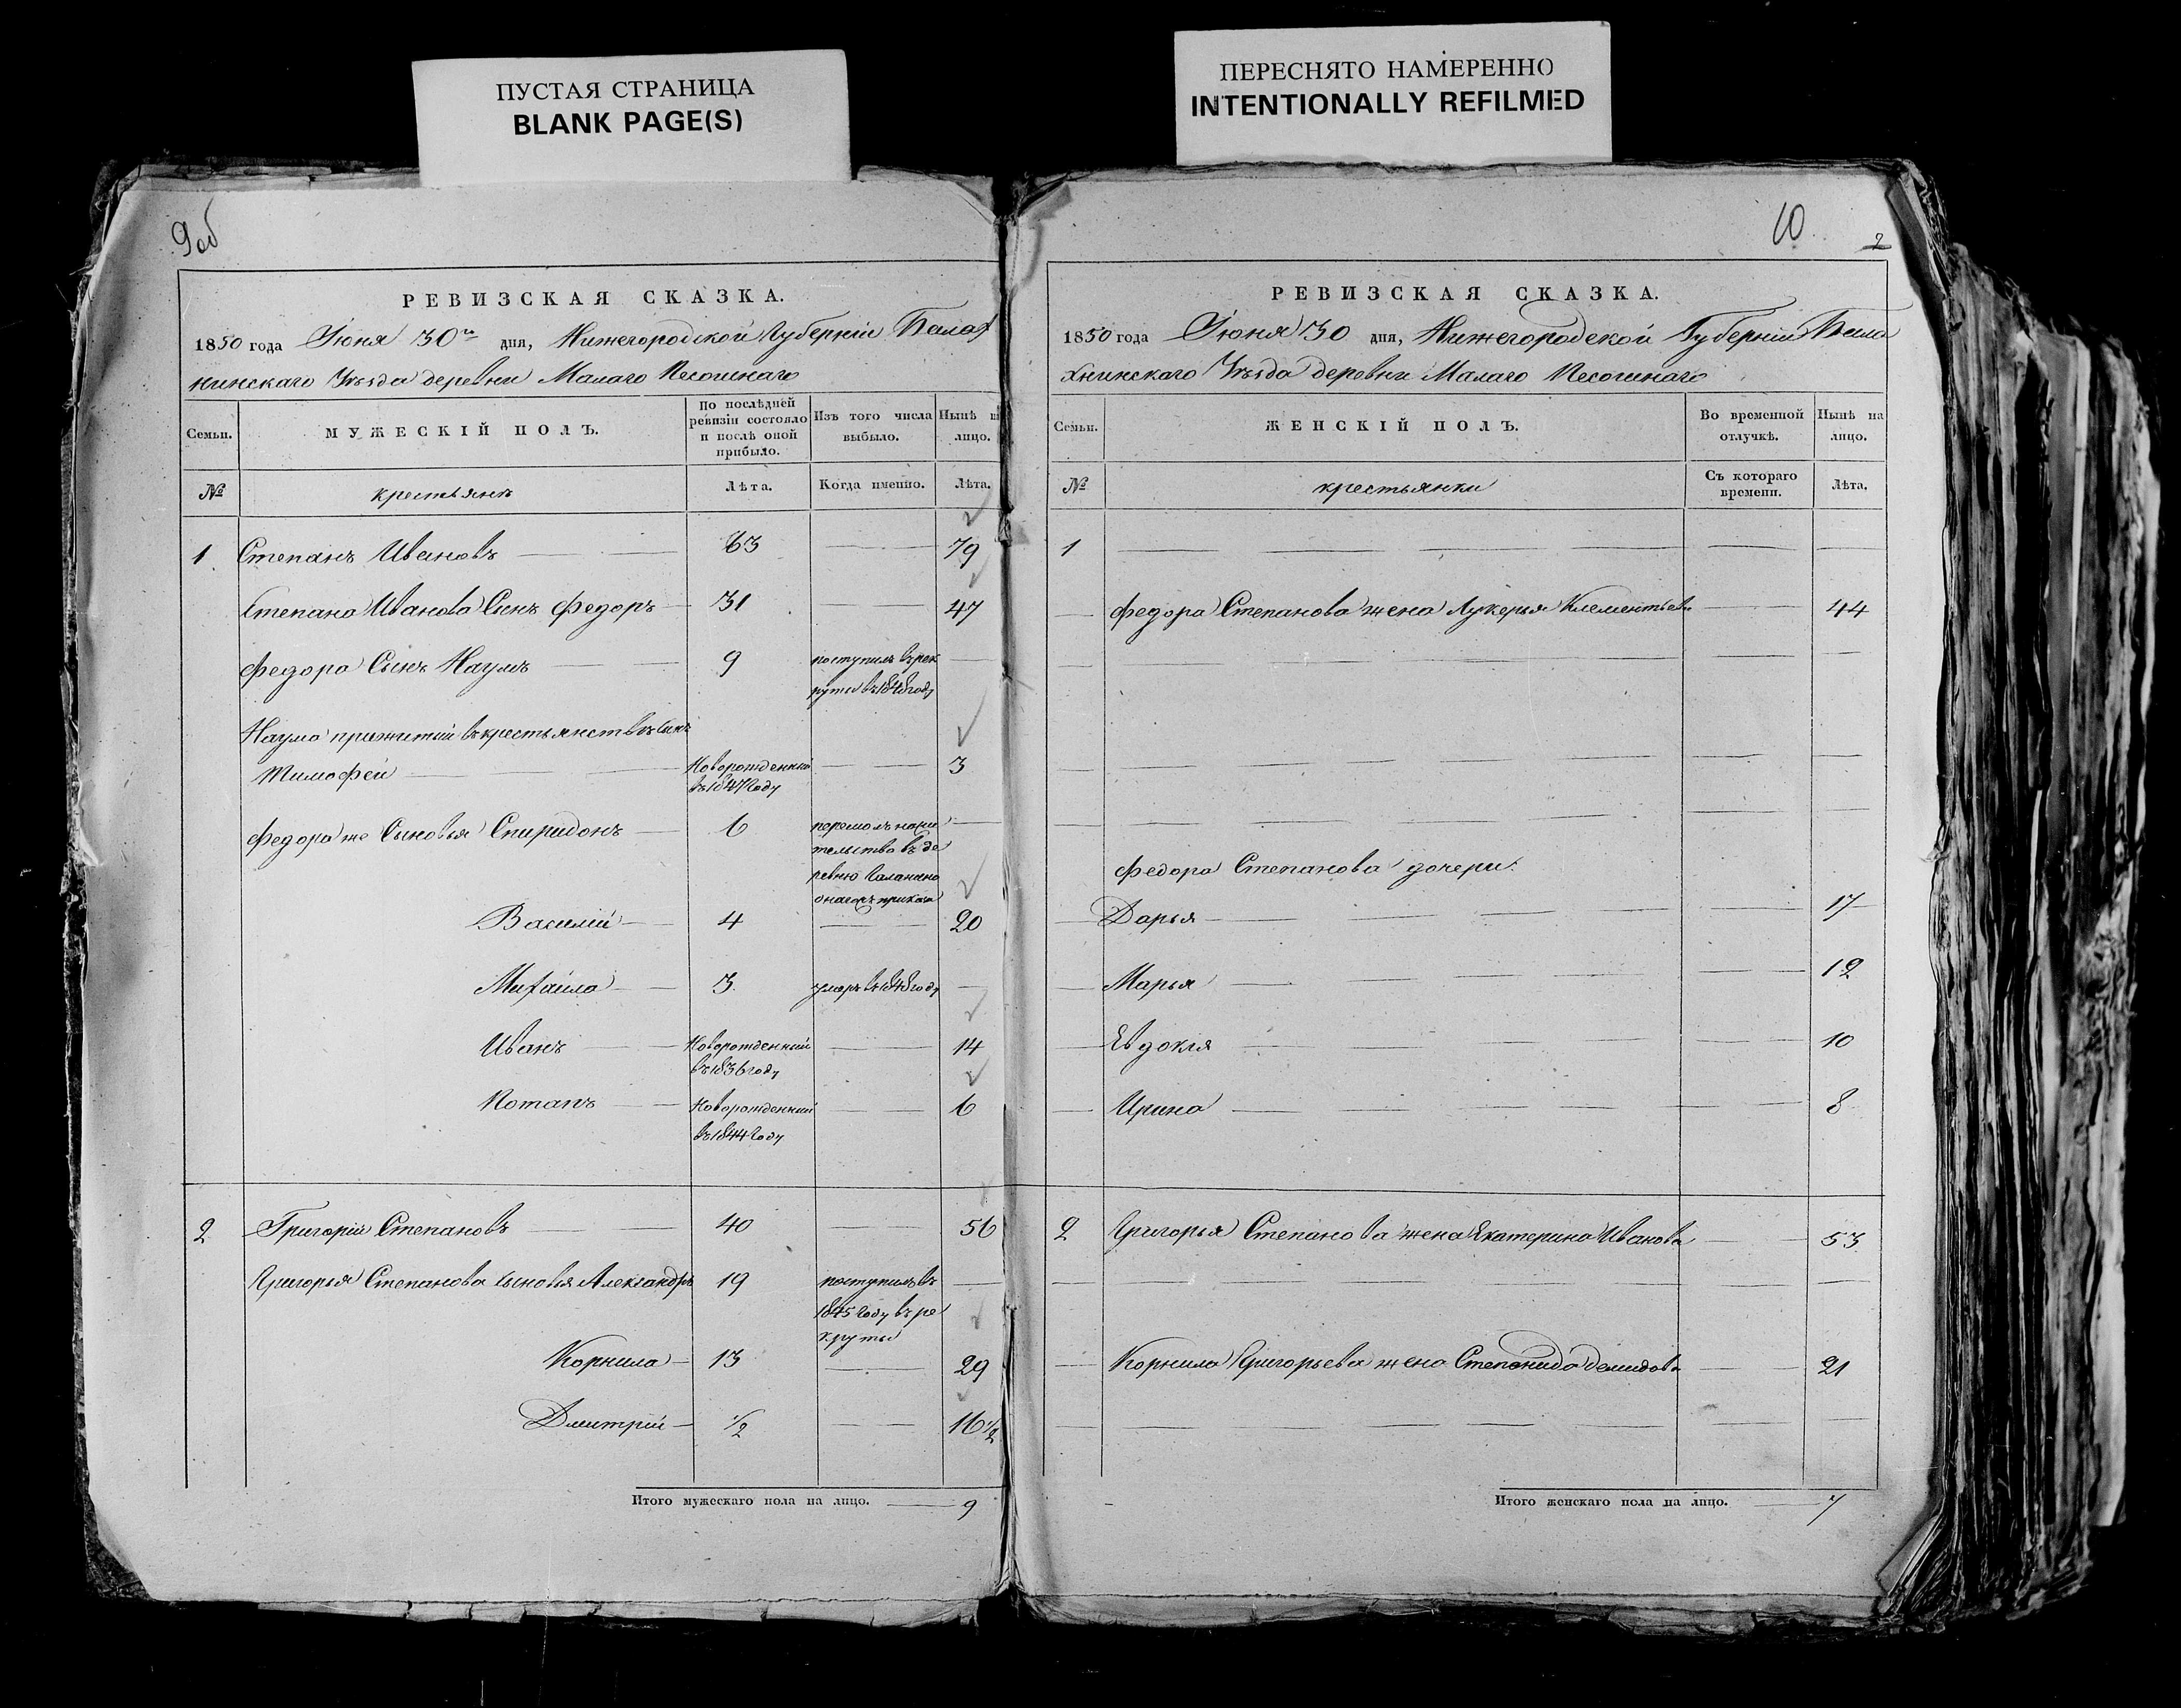 ПУСТАЯ СТРАНИЦА
BLANK PAGE(S)
ПЕРЕСНЯТО НАМЕРЕННО
INTENTIONALLY REFILMED
9об
РЕВИЗСКАЯ СКАЗКА.
1850 года Июня 30го дня, Нижегородской Губерніи Балах
нинскаго Уѣзда деревни Малаго Песошнаго
Семьи.
МУЖЕСКІЙ ПОЛЪ.
По послѣдней ревизіи состояло и послѣ оной прибыло.
Изъ того числа выбыло.
Нынѣ на лицо.
№ крестьянъ Лѣта. Когда именно. Лѣта.
1 Степанъ Ивановъ 63 79
Степана Иванова Сынъ Федоръ 31 47
Федора Сынъ Наумъ 9 поступилъ въ рек
руты въ 1848 году
Наума прижитый въ крестьянствѣ сынъ
Тимофей Новорожденный 3
въ 1847 Году
Федора же Сыновья Спиридонъ 6
тельство въ де
ревню
Василій 4 20
Михайла 3 умеръ въ 1848 году
Иванъ Новорожденный 14
въ 1836 году
Потапъ Новорожденный 6
въ 1844 Году
2 Григорій Степановъ 40 56
Григорья Степанова сыновья Александръ 19 поступилъ въ
1845 Году въ ре
круты
Корнила 13 29
Дмитрій 1/2 16 1/2
Итого мужескаго пола на лицо. 9
10
2
РЕВИЗСКАЯ СКАЗКА.
1850 года Июня 30 дня, Нижегородской Губерніи Бала
хнинскаго Уѣзда деревни Малаго Песошнаго
Семьи.
ЖЕНСКІЙ ПОЛЪ.
Во временной отлучкѣ.
Нынѣ на лицо.
№ крестьянки Съ котораго времени. Лѣта.
1
Федора Степанова жена Лукерья Клементьева 44
Федора Степанова дочери:
Дарья 17
Марья 12
Евдокія 10
Ирина 8
2 Григорья Степанова жена Екатерина Иванова 53
Корнила Григорьева жена Степанида Демидова 21
Итого женскаго пола на лицо. 7